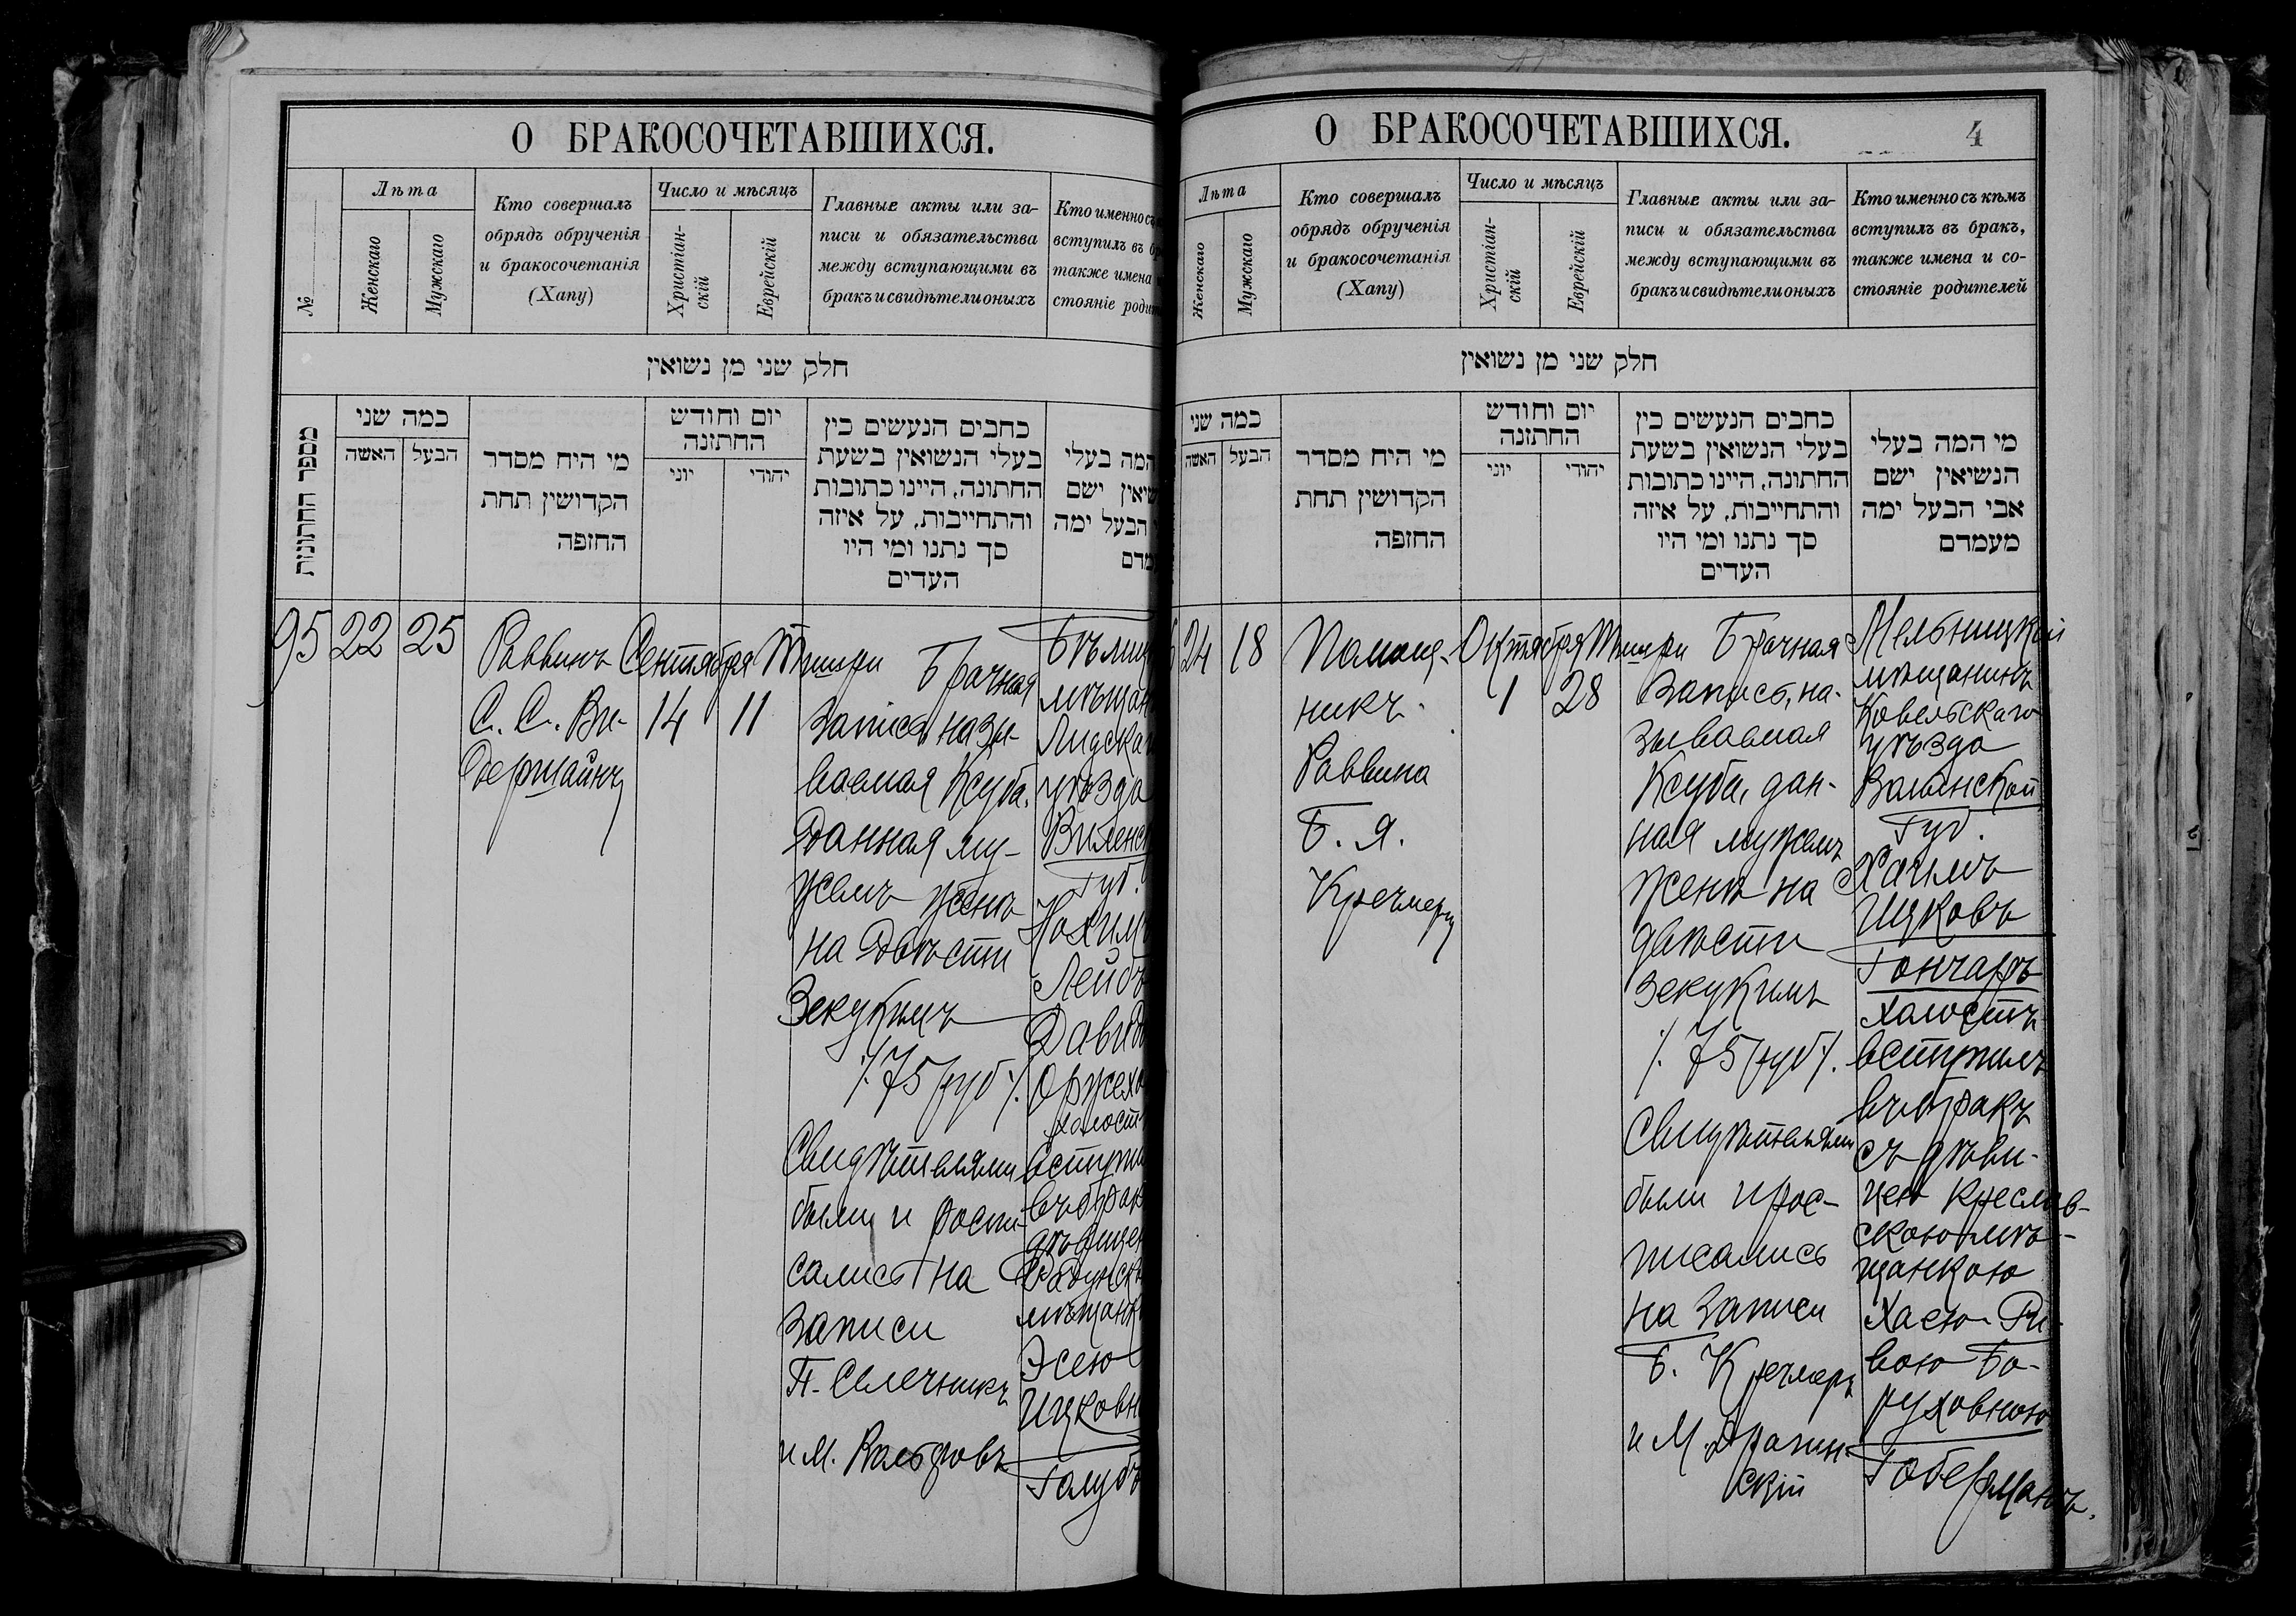 О БРАКОСОЧЕТАВШИХСЯ.
№
Лѣта
Женскаго
Мужскаго
Кто совершалъ
обрядъ обрученія
и бракосочетанія
(Хапу)
Число и мѣсяцъ
Христіан-
скій
Еврейскій
Главные акты или за-
писи и обязательства
между вступающими въ
бракъ и свидѣтели оныхъ
Кто именно съ
вступилъ въ
также имена
стояніе
חלק שני מן נשואין
מספר החתונות
כמה שני
האשה
הבעל
מי היח מסדר
הקדושין תחת
החופה
יום וחודש
החתונה
יוני
יהודי
כתבים הנעשים בין
בעלי הנשואין בשעת
החתונה, היינו כתובות
והתחייבות, על איזה
סך נתנו ומי היו
העדים
המה בעלי
ישם
הבעל ימה
95
22
25
Раввинъ
С. С. Ви-
дершайнъ
Сентября
14
Тишри
11
Брачная
запись назы-
ваемая Ксуба,
данная му-
жемъ женѣ
на двѣсти
зекукимъ
/. 75 руб /.
Свидѣтелями
были и роспи-
сались на
записи
П. Слечникъ
и М.
Лидска
уѣзда
Виленск
Губ.
Лейб
Давид
Оржехо
холост
вступи
въ брак
дѣвицею
мѣщанк
Эсею
Ицковн
Голубъ
О БРАКОСОЧЕТАВШИХСЯ.
4
Лѣта
Женскаго
Мужскаго
Кто совершалъ
обрядъ обрученія
и бракосочетанія
(Хапу)
Число и мѣсяцъ
Христіан-
скій
Еврейскій
Главные акты или за-
писи и обязательства
между вступающими въ
бракъ и свидѣтели оныхъ
Кто именно съ кѣмъ
вступилъ въ бракъ,
также имена и со-
стояніе родителей
חלק שני מן נשואין
כמה שני
האשה
הבעל
מי היח מסדר
הקדושין תחת
החופה
יום וחודש
החתונה
יוני
יהודי
כתבים הנעשים בין
בעלי הנשואין בשעת
החתונה, היינו כתובות
והתחייבות, על איזה
סך נתנו ומי היו
העדים
מי המה בעלי
הנשיאין ישם
אבי הבעל ימה
מעמדם
24
18
Помощ-
никъ
Раввина
Б. Я.
Кречмеръ
Октября
1
Тишри
28
Брачная
запись, на-
зываемая
Ксуба, дан-
ная мужемъ
женѣ на
двѣсти
зекукимъ
/. 75 руб /.
Свидѣтелями
были и рос-
писались
на записи
Б. Кречмеръ
и М.
Мельницкій
мѣщанинъ
Ковельскаго
уѣзда
Волынской
Губ.
Хаимъ
Ицковъ
Гончаръ
холостъ
вступилъ
въ бракъ
съ дѣви-
цею Креслав-
скою мѣ-
щанкою
Хаею-Ри-
вою Бо-
руховною
Гоберманъ.